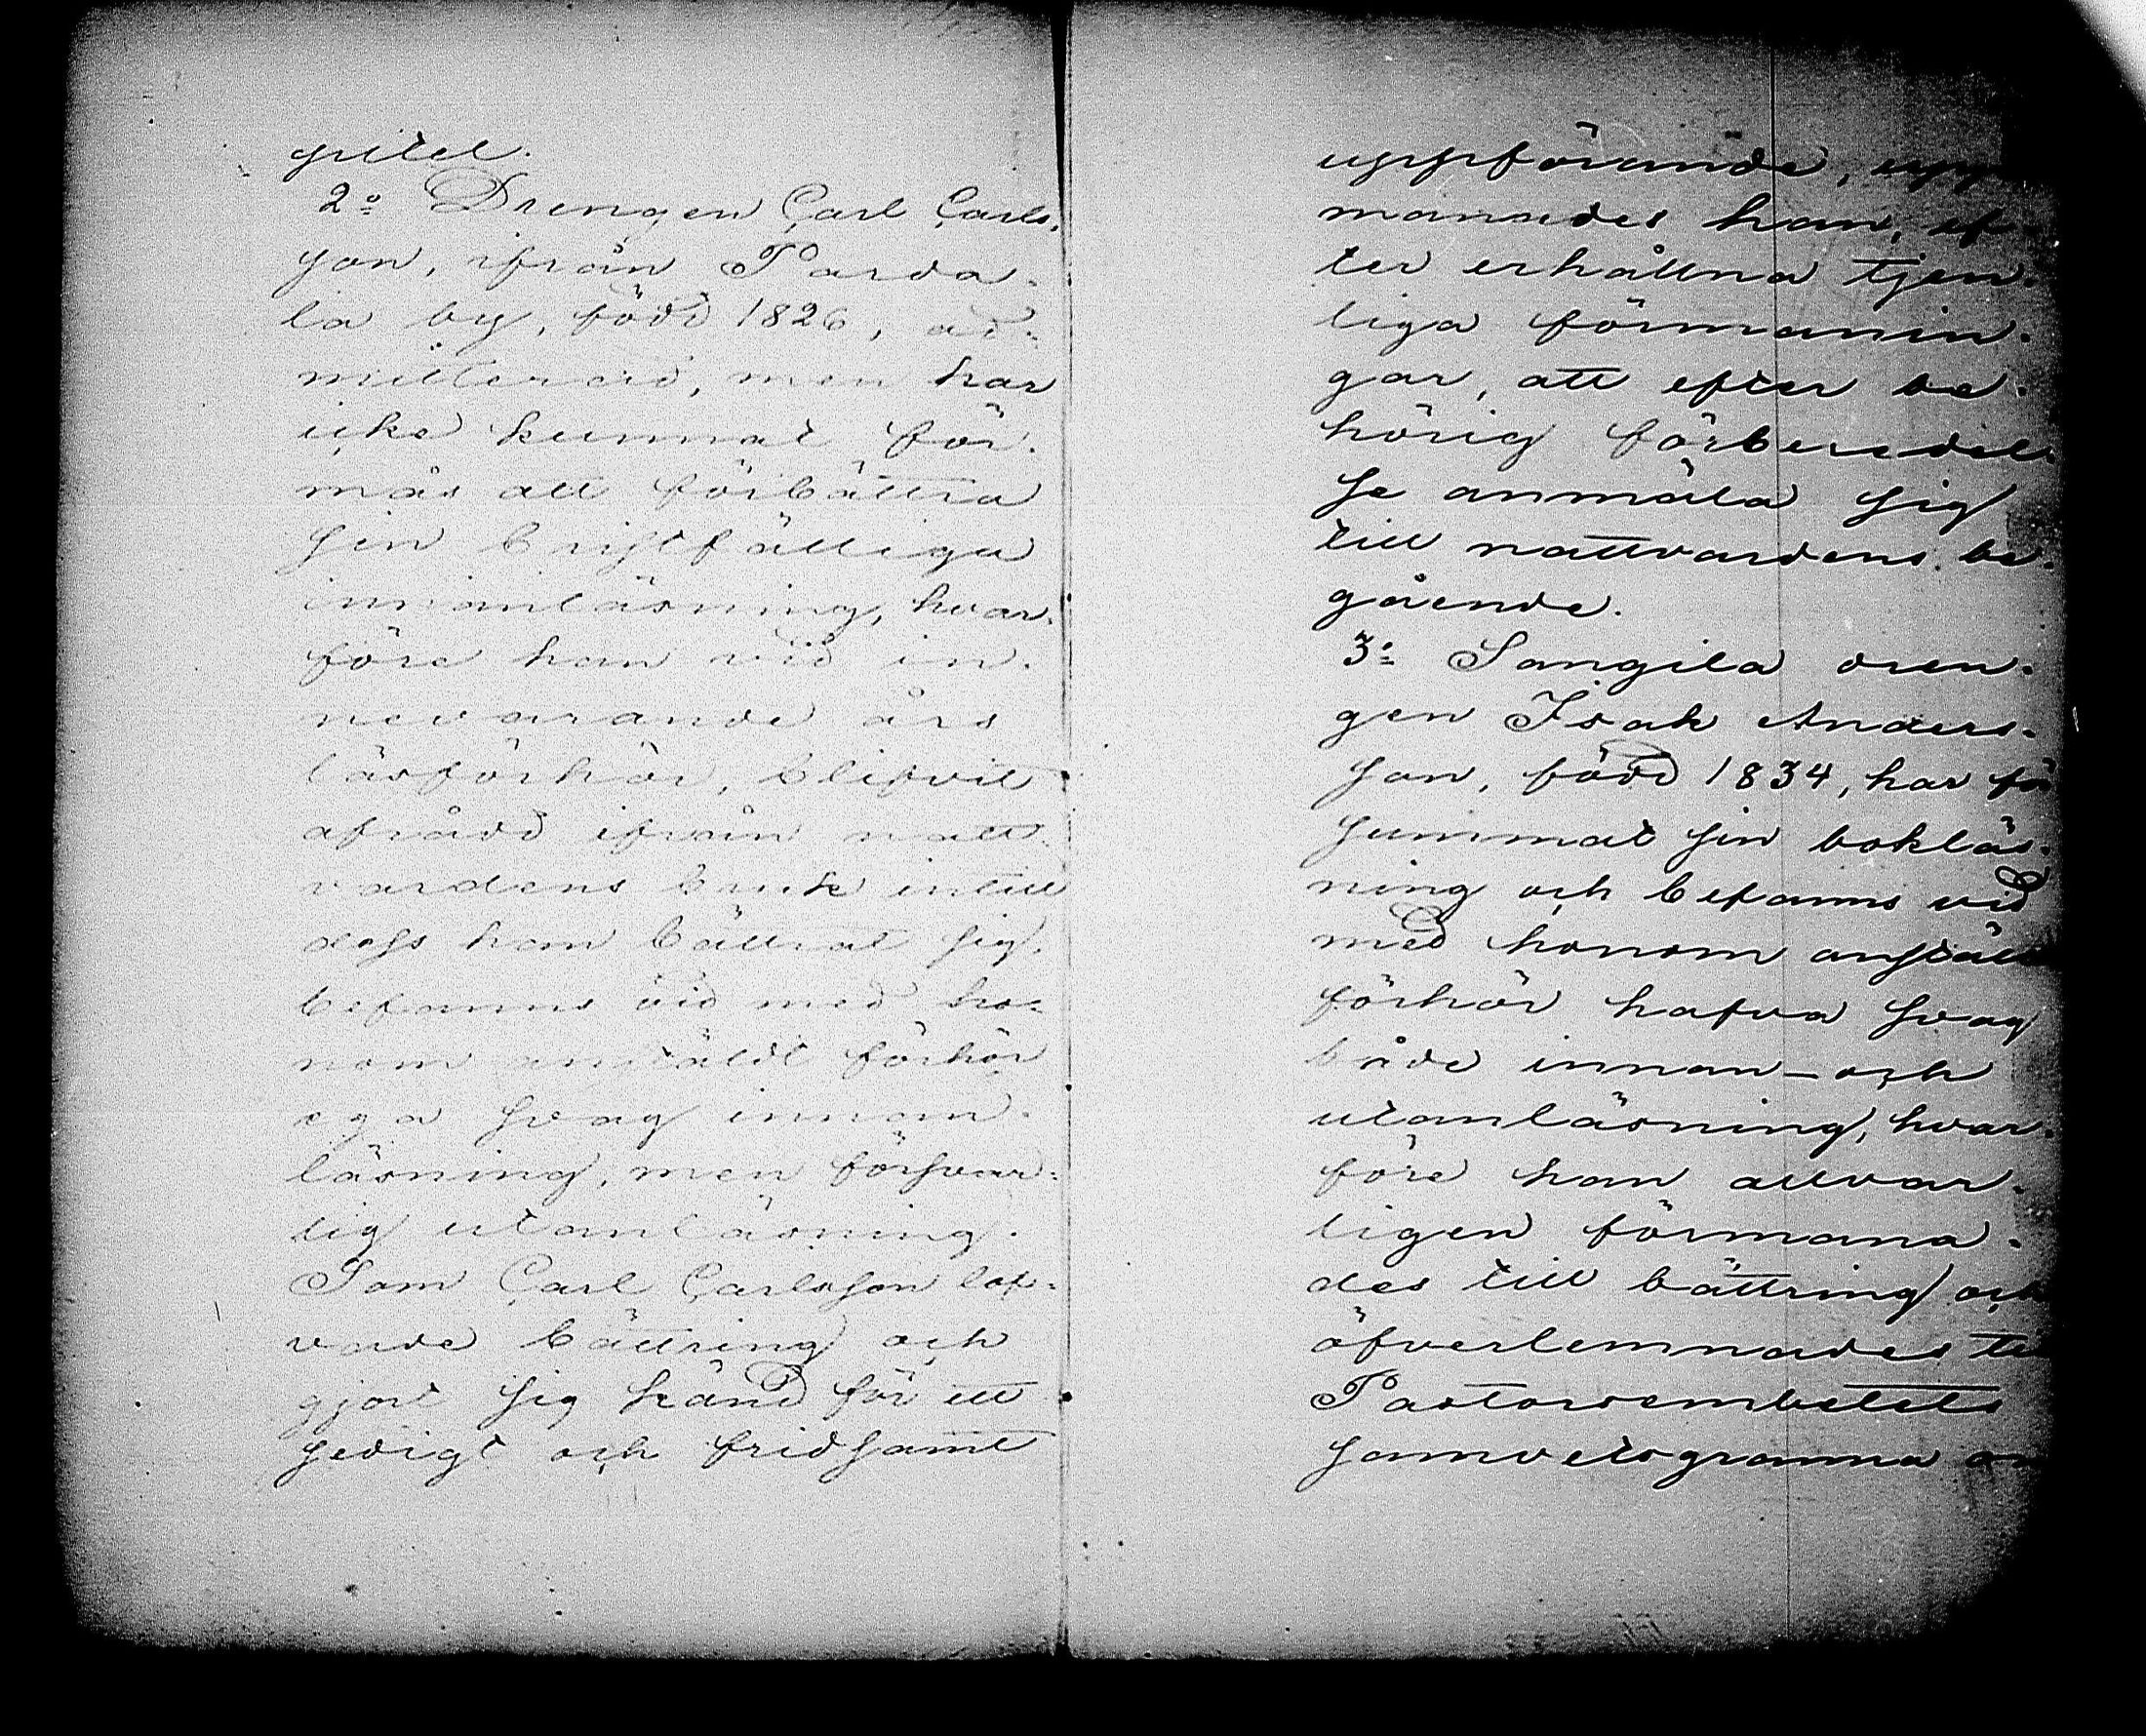 pitel.
2:o Drengen Carl Carls-
son, ifrån Parda-
la by, född 1826, ad-
mitterad, men har
icke kunnat för-
mås att förbättra
sin bristfälliga
innanläsning, hvar-
före han vid in-
nevarande års
läsförhör, blifvit
afrådd ifrån natt-
vardens bruk intill
dess han bättrat sig,
befanns vid med ho-
nom anstäldt förhör
ega svag innan-
läsning, men försvar-
lig utanläsning.
Som Carl Carlsson lof-
vade bättring och
gjort sig känd för ett
sedigt och fridsamt
uppförande, upp-
manades han, ef-
ter erhållna tjen-
liga förmanin-
gar, att efter be-
hörig förberedel-
se anmäla sig
till nattvardens be-
gående.
3:o Sangila dren-
gen Isak Anders-
son, född 1834, har för
summat sin bokläs-
ning och befanns vid
med honom anstäldt
förhör hafva svag
både innan- och
utanläsning, hvar-
före han allvar-
ligen förmana-
des till bättring och
öfverlemnades till
Pastorsembetets
samvetsgranna